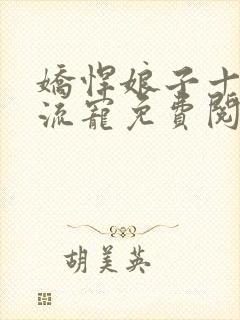 嬌悍娘子十
流寵免費閱
胡美英